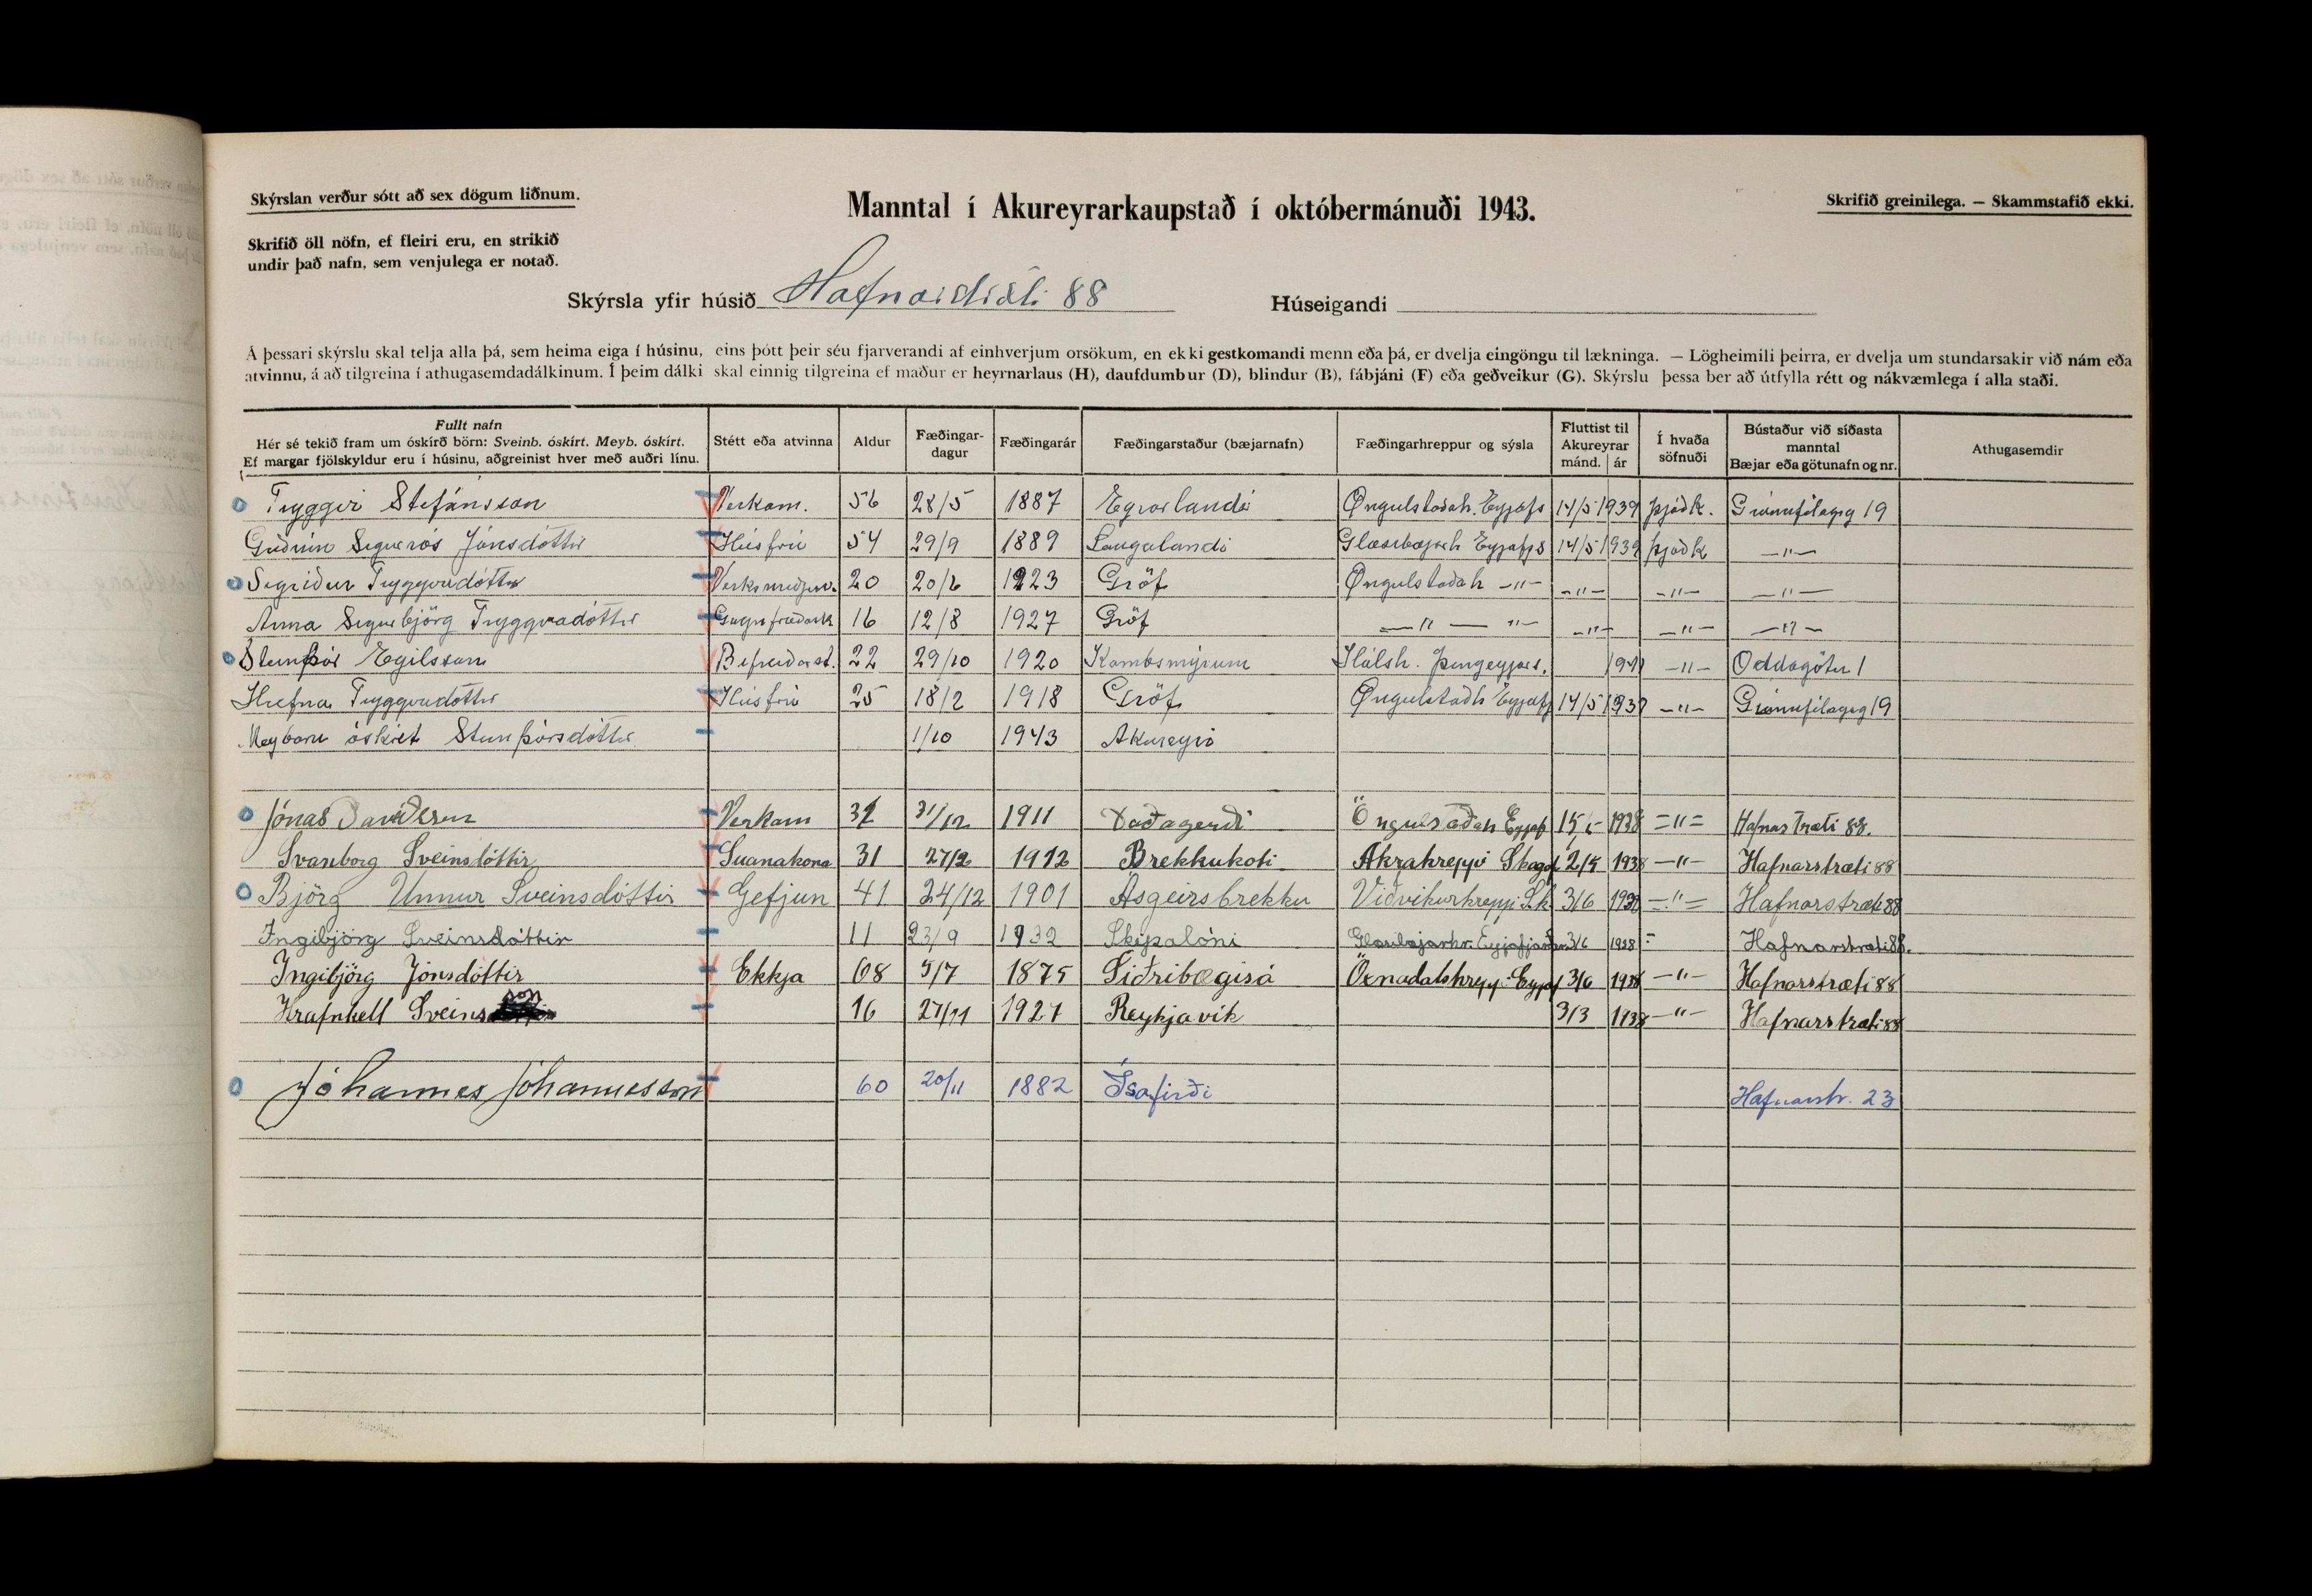 Skýrslan verður sótt að sex dögum liðnum.
Manntal í Akureyrarkaupstað í októbermánuði 1943.
Skrifið greinilega. — Skammstafið ekki.
Skrifið öll nöfn, ef fleiri eru, en strikið
undir það nafn, sem venjulega er notað.
Skýrsla yfir húsið Hafnarstræti 88 Húseigandi
Á þessari skýrslu skal telja alla þá, sem heima eiga í húsinu, eins þótt þeir séu fjarverandi af einhverjum orsökum, en ekki gestkomandi menn eða þá, er dvelja eingöngu til lækninga. — Lögheimili þeirra, er dvelja um stundarsakir við nám eða
atvinnu, á að tilgreina í athugasemdadálkinum. Í þeim dálki skal einnig tilgreina ef maður er heyrnarlaus (H), daufdumbur (D), blindur (B), fábjáni (F) eða geðveikur (G). Skýrslu þessa ber að útfylla rétt og nákvæmlega í alla staði.
Fullt nafn
Hér sé tekið fram um óskírð börn: Sveinb. óskírt. Meyb. óskírt.
Ef margar fjölskyldur eru í húsinu, aðgreinist hver með auðri línu.
Stétt eða atvinna
Aldur
Fæðingar-
dagur
Fæðingarár
Fæðingarstaður (bæjarnafn)
Fæðingarhreppur og sýsla
Fluttist til
Akureyrar
mánd. ár
Í hvaða
söfnuði
Bústaður við síðasta
manntal
Bæjar eða götunafn og nr.
Athugasemdir
Tryggvi Stefánsson Verkam. 56 28/5 1887 Eyrarlandi Öngulstaðah. Eyjafs 14/5 1939 þjóðk. Gránufélagsg 19
Guðrún Sigurrós Jónsdóttir Húsfrú 54 29/9 1889 Laugalandi Glæsibæjarh Eyjafjs 14/5 1939 þjóðk —"—
Sigríður Tryggvadóttir Verksmiðjust. 20 20/6 1923 Gröf Öngulstaðah —"— —"— —"— —"—
Anna Sigurbjörg Tryggvadóttir Gagnfræðask 16 12/8 1927 Gröf —"— "— —"— —"— —"—
Steinþór Egilsson Bifreiðarst. 22 29/10 1920 Kambsmýrum Hálsh. Þingeyjars. 1941 —"— Oddagötu 1
Hrefna Tryggvadóttir Húsfrú 25 18/2 1918 Gröf Öngulstaðh Eyjafj 14/5 1937 —"— Gránufélagsg 19
Meybarn óskírt Steinþórsdóttir 1/10 1943 Akureyri
Jónas Davíðsson Verkam 31/12 1911 Daðagerði Öngulstaðah Eyjaf 15/5 1938 ="= Hafnarstræti 88.
Svanborg Sveinsdóttir Suanakona 31 27/2 1912 Brekkukoti Akrahreppi Skagaf 2/5 1938 —"— Hafnarstræti 88
Björg Unnur Sveinsdóttir Gefjun 41 24/12 1901 Ásgeirsbrekku Viðvíkurhreppi Sk 3/6 1938 ="= Hafnarstræti 88
Ingibjörg Sveinsdóttir 11 23/9 1932 Skipalóni Glæsibæjarhr. Eyjafjarðar 3/6 1938 = Hafnarstræti 88.
Ingibjörg Jónsdóttir Ekkja 68 5/7 1875 Siðribægisá Öxnadalshrepp Eyjaf 3/6 1938 —"— Hafnarstræti 88
Hrafnkell Sveinsson 16 27/11 1927 Reykjavík 3/3 1938 —"— Hafnarstræti 88
Jóhannes Jóhannesson 60 20/11 1882 Ísafirði Hafnarstr. 23